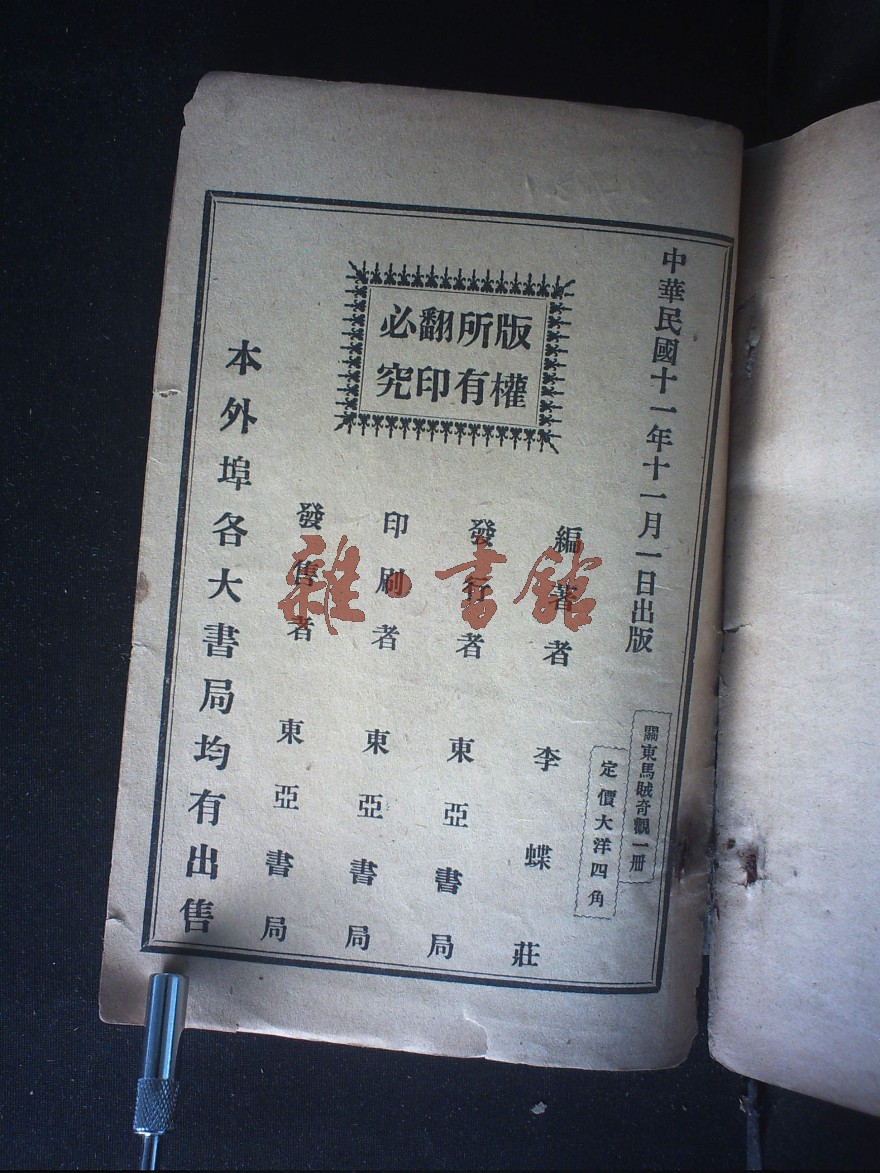 中華民國十一年十一月一日出版
關東馬賊奇觀一册
定價大洋四角
版權
所有
翻印
必究
編著者 李蝶莊
發行者 東亞書局
印刷者 東亞書局
發售者 東亞書局
本外埠各大書局均有出售
雜·書館